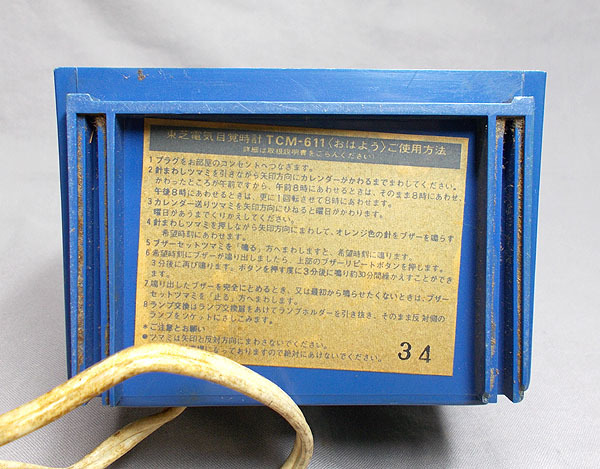 東芝電気目覚時計 TCM-611〈おはよう〉ご使用方法
(詳細は取扱説明書をごらんください)
1 プラグをお部屋のコンセントへつなぎます。
2 針まわしツマミを引きながら矢印方向にカレンダーがかわるまでまわしてください。
かわったところが午前ですから、午前8時にあわせるときは、そのまま8時にあわせ、
午後8時にあわせるときは、更に1回転させて8時にあわせます。
3 カレンダー送りツマミを矢印方向にひねると曜日がかわります。
曜日があうまでくりかえしてください。
4 針まわしツマミを押しながら矢印方向にまわして、オレンジ色の針をブザーを鳴らす
希望時刻にあわせます。
5 ブザーセットツマミを「鳴る」方へまわしますと、希望時刻に鳴ります。
6 希望時刻にブザーが鳴り出しましたら、上部のブザーリピートボタンを押します。
3分後に再び鳴ります。ボタンを押す度に3分後に鳴り約30分間繰かえすことができ
ます。
7 鳴り出したブザーを完全にとめるとき、又は最初から鳴らせたくないときは、ブザー
セットツマミを「止る」方へまわします。
8 ランプ交換はランプ交換蓋をあけてランプホルダーを引き抜き、そのまま反対側の
ランプをソケットにさしこみます。
*ご注意とお願い
●ツマミは矢印と反対方向にまわさないでください。
なっておりますので絶対にあけないでください。
34